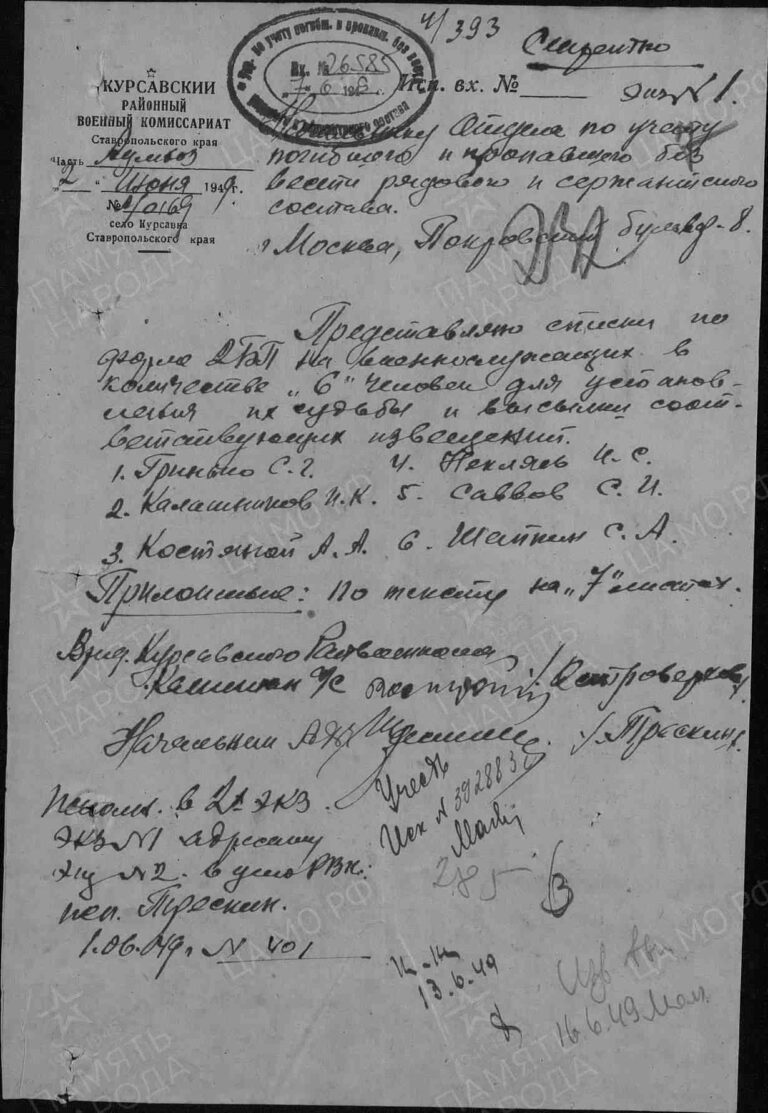 4/393
Упр. по учету погибш. и пропавш. без вести
Вх. № 26585
"7" 6 1949 г.
рядового и сержантского состава
Секретно
Исп. вх. №
экз N 1.
КУРСАВСКИЙ
РАЙОННЫЙ
ВОЕННЫЙ КОМИССАРИАТ
Ставропольского края
Часть
"2" июня 1949 г.
№ 4/0169
село Курсавка
Ставропольского края
Начальнику Отдела по учету
погибшего и пропавшего без
вести рядового и сержантского
состава.
г. Москва, Покровский бульвар-8.
Представляю списки по
форме 2БП на военнослужащих в
количестве "6" человек для установ-
ления их судьбы и высылки соот-
ветствующих извещений.
1. Гринько С.Г. 4. Некляев И.С.
2. Калашников И.К. 5. Саввов С.И.
3. Костянной А.А. 6. Шапкин С.А.
Приложение: По тексту на "7" листах.
Врид. Курсавского Райвоенкома
Капитан /Островерхов/
Начальник /Трескин/
Исполн. в 2х экз.
Экз N1 адресату
Экз N2. в дело РВК.
исп. Трескин.
1.06.49г. N 401
Учесть
Исх N 392883с
285
В
13.6.49
Изв
16.6.49
ПАМЯТЬ НАРОДА
ЦА МО РФ